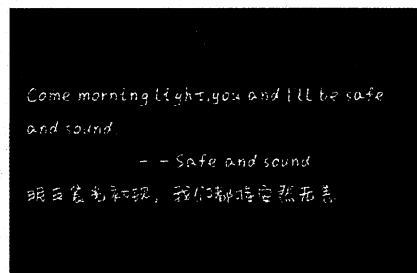 Come morning light, you and I'll be safe
and sound.
- - Safe and sound
明日晨光初现，我们都将安然无恙